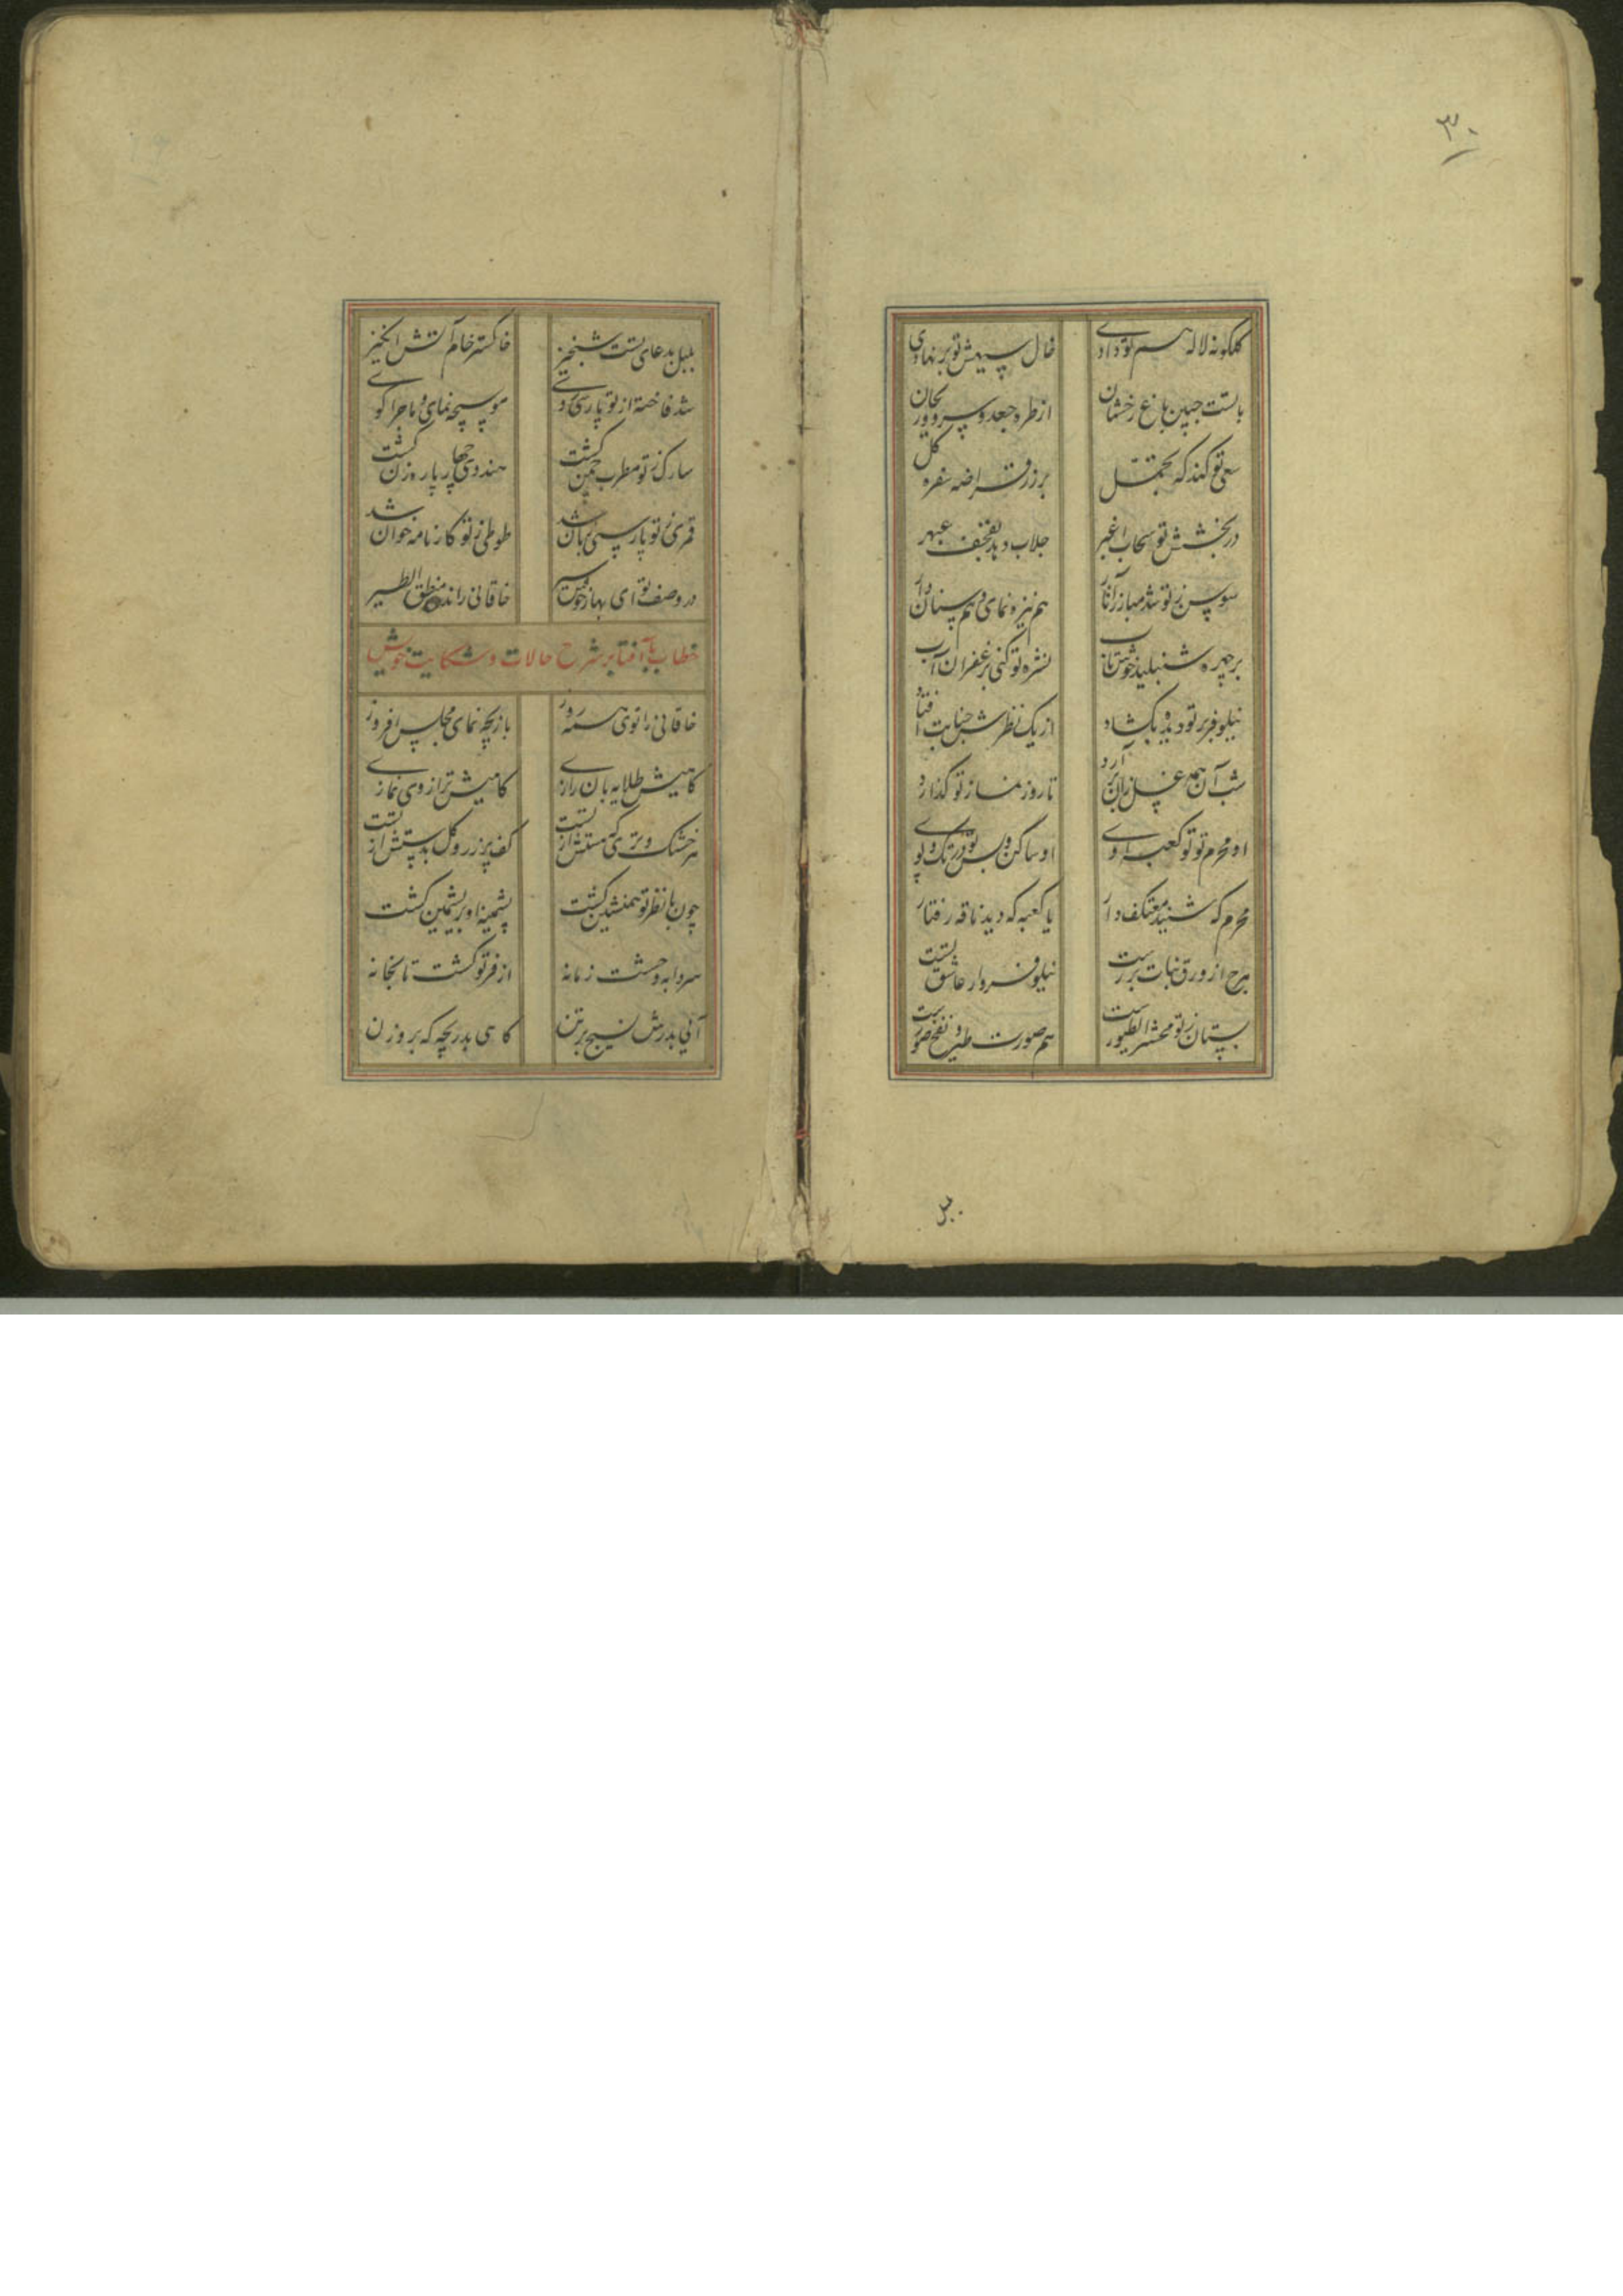 ۳۰
گلگونه لاله هم تو دادی
خال سیهش تو بر نهادی
بالتست جبین باغ رخشان
از طره جعد و پرووریحان
سعی تو کند که تحمل
بر زر قراضه سفره گل
در بخشش تو سحاب اغبر
جلاب دهد بفخف عبهر
سوسن ز تو شد مبارز آثار
هم نیزه نمای و هم سنان دار
بر چهره شنبلید خوش تاب
نشره تو کنی بزعفران آب
نیلوفر بر تو دیده بگشاد
از یک نظرش جنابت افتاد
شب آن همه غسل زان بر آرد
تا روز نماز تو گذارد
او محرم تو تو کعبه اوی
او ساکن و بس تو در تک و پوی
محرم که شنید معتکف دار
یا کعبه که دید ناقه رفتار
هرج از ورق نبات برست
نیلوفروار عاشق تست
بستان ز تو محشر الطیورست
هم صورت طیر و نفخ صورست
۳۰
بلبل بدعای تست شبخیز
خاکستر خام آتش انگیز
شد فاخته از تو پارسی گوی
موسیچه نمای و ماجرا گوی
سارک ز تو مطرب چمن گشت
هندوی چهارپاره زن گشت
قمری ز تو پارسی زبان شد
طوطی ز تو کارنامه خوان شد
در وصف تو ای بهار خوش سیر
خاقانی راند منطق الطیر
خطاب بآفتاب بر شرح حالات و شکایت خویش
خاقانی را توی همه روز
بازیچه نمای مجلس افروز
گاهیش طلایه بان رازی
گاهیش ترازوی نمازی
هر خشک و تری که هستش از تست
کف پر زر و گل بدستش از تست
چون با نظر تو همنشین گشت
پشمینه او بریشمین گشت
سردابه وحشت زمانه
از فر تو گشت تابخانه
آئی بدرش نسیج بر تن
گاهی بدریچه گه بروزن